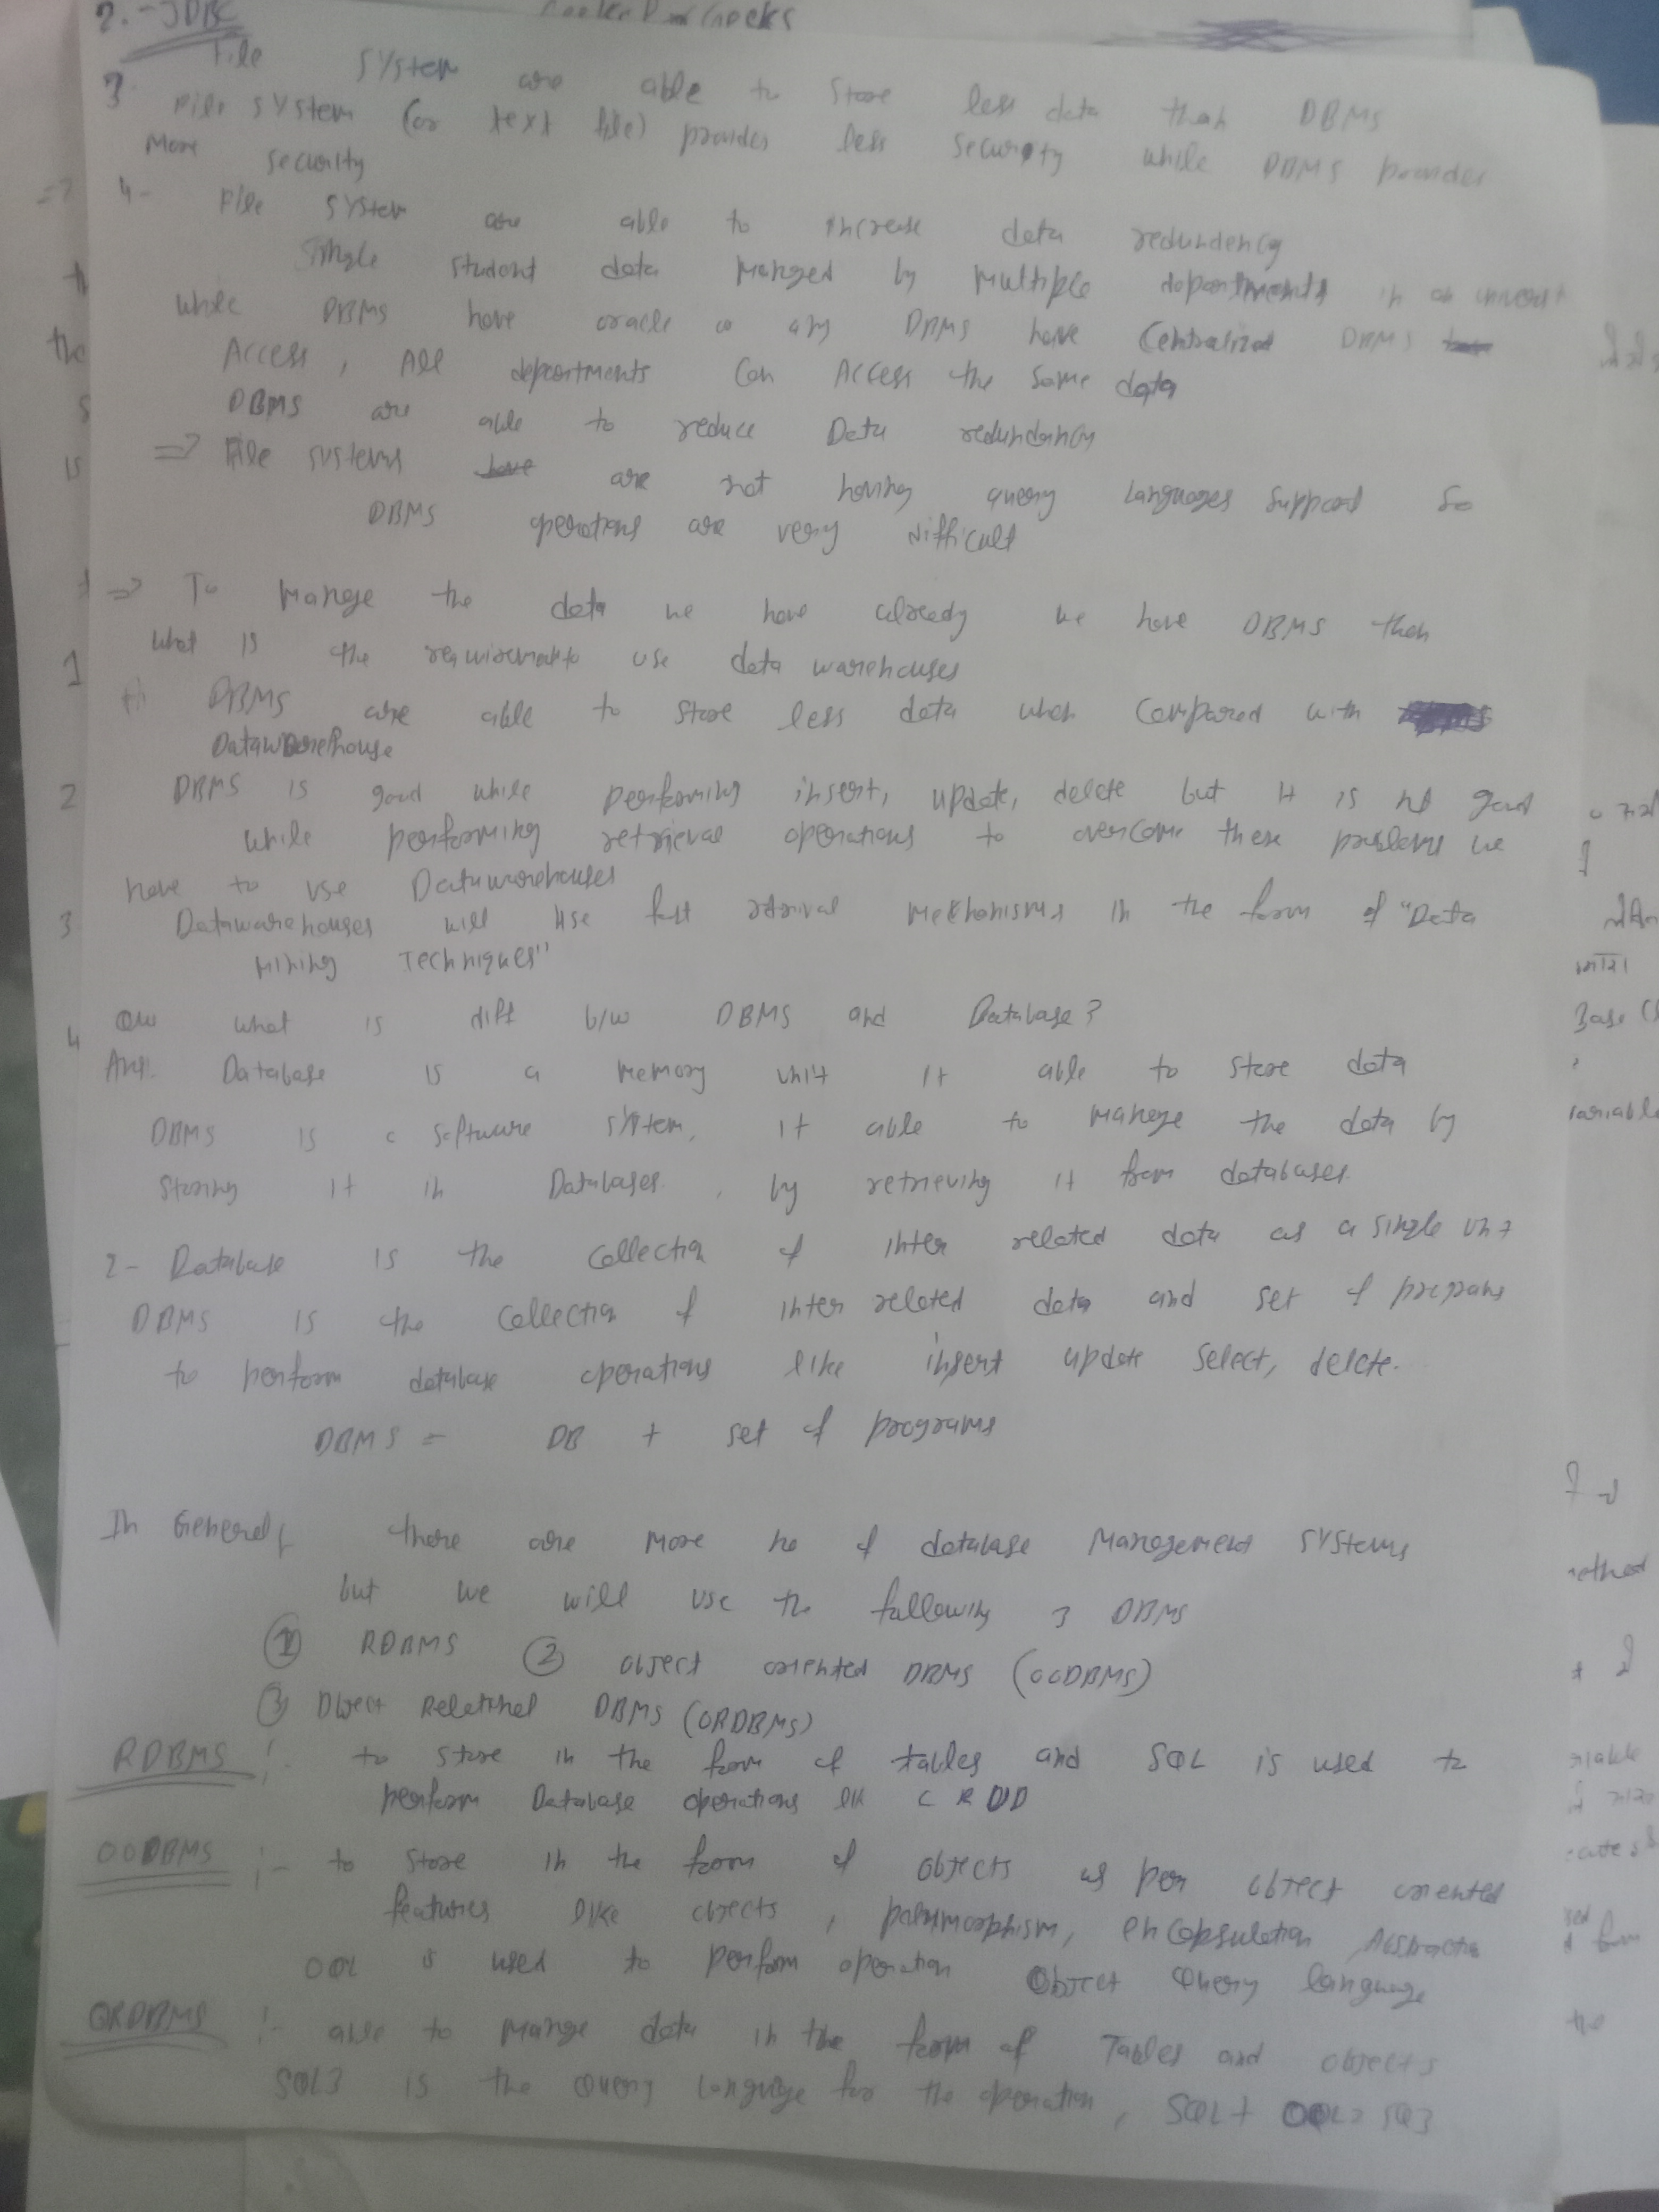 2. - JDBC
File system are able to store less data than DBMS
3. File system (or text file) provides less security while DBMS provides
more security
4- File system are able to increase data redundency
single student data manged by multiple departments in an
while DBMS have oracle or any DBMS have Centralized DBMS
Access, All departments can Access the same data
DBMS are able to reduce Data redundancy
=> File systems are not having query languages support so
DBMS operations are very difficult
=> To mange the data we have already we have DBMS then
what is the requirement to use data warehouses
1 DBMS are able to store less data when compared with
Datawarehouse
2 DBMS is good while performing insert, update, delete but it is not good
while performing retrieval operations to overcome these problems we
have to use Datawarehouses
3 Datawarehouses will use fast retrival mechanisms in the form of "Data
Mining Techniques"
Que what is diff b/w DBMS and Database?
4
Ans. Database is a memory unit it able to store data
DBMS is a software system, it able to manage the data by
storing it in Databases , by retrieving it from databases.
2- Database is the collection of inter related data as a single unit
DBMS is the collection of inter related data and set of programs
to perform database operations like insert update select, delete.
DBMS = DB + set of programs
In General there are more no of database Management systems
but we will use the following 3 DBMS
① RDBMS ② object oriented DBMS (OODBMS)
③ Object Relational DBMS (ORDBMS)
RDBMS :- to store in the form of tables and SQL is used to
perform Database operations lik CRUD
OODBMS :- to store in the form of objects as per object oriented
features like objects, polymorphism, encapsulation, Abstraction
OQL is used to perform operation Object Query language
ORDBMS :- able to mange data in the form of Tables and objects
SQL3 is the Query language for the operation, SQL + OQL = SQ3